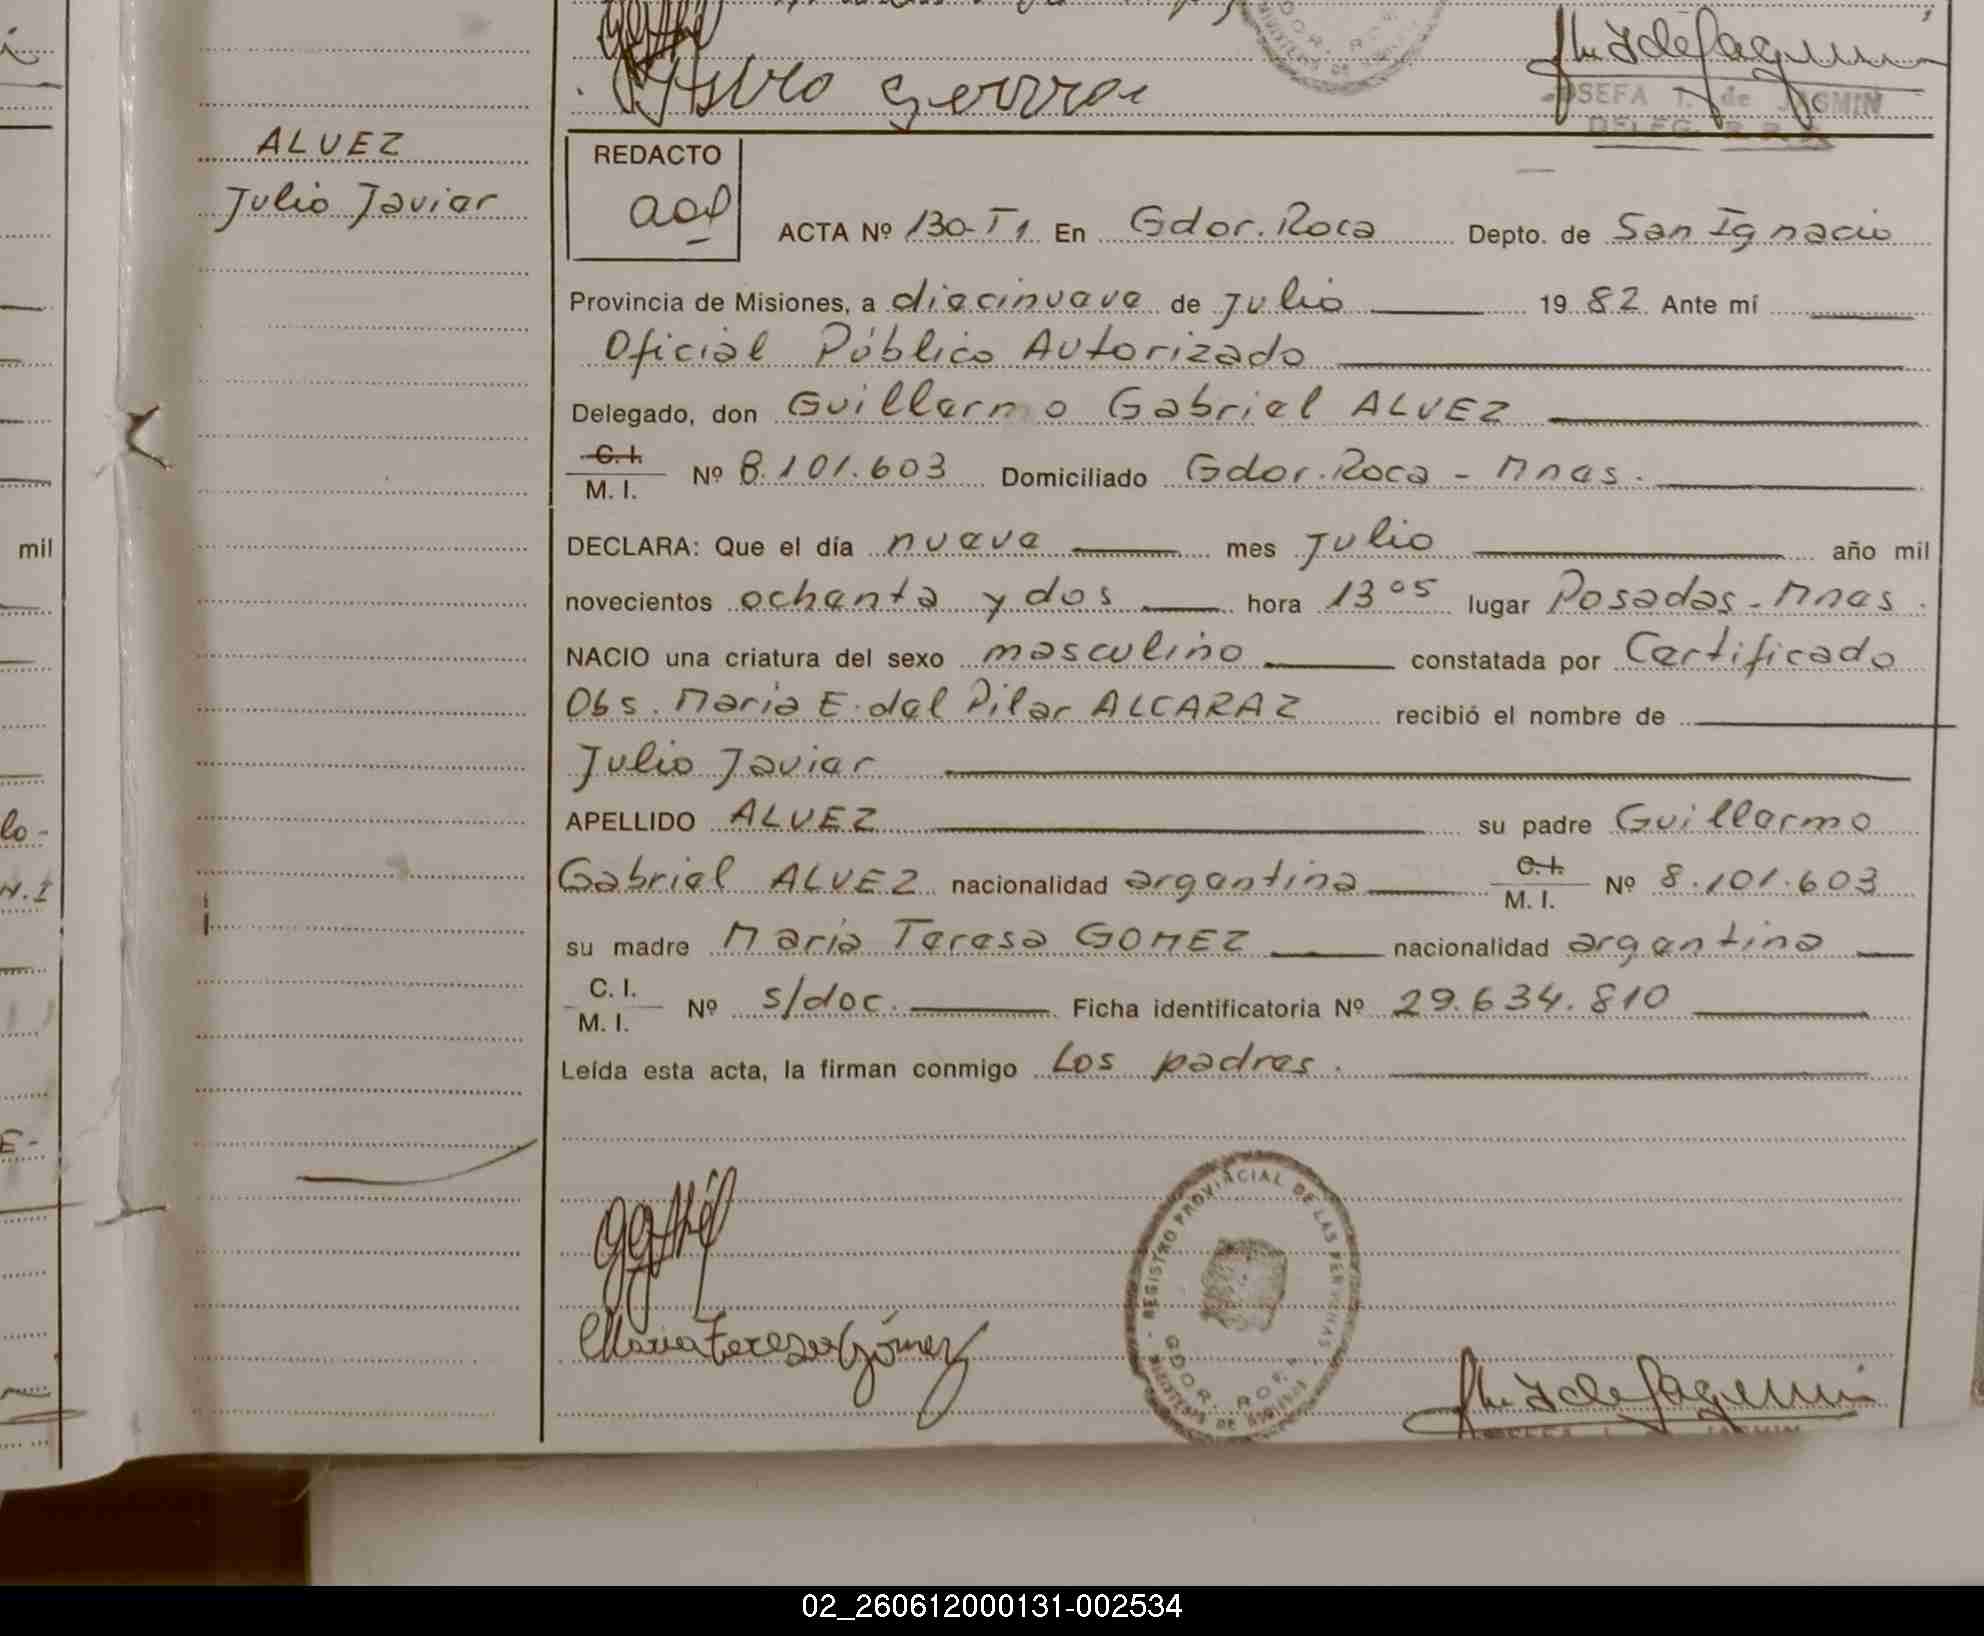 Castro Gerrra
JOSEFA I. de JAGMIN
DELEG. R. P. P.
ALVEZ
Julio Javier
REDACTO
ACTA Nº 130-T1 En Gdor. Roca Depto. de San Ignacio
Provincia de Misiones, a diecinueve de Julio 1982 Ante mí
Oficial Público Autorizado
Delegado, don Guillermo Gabriel ALVEZ
C. I.
M. I. Nº 8.101.603 Domiciliado Gdor. Roca - Mnes.
DECLARA: Que el día nueve mes Julio año mil
novecientos ochenta y dos hora 13 05 lugar Posadas - Mnes.
NACIO una criatura del sexo masculino constatada por Certificado
Obs. Maria E. del Pilar ALCARAZ recibió el nombre de
Julio Javier
APELLIDO ALVEZ su padre Guillermo
Gabriel ALVEZ nacionalidad argentina C. I. M. I. Nº 8.101.603
su madre Maria Teresa GOMEZ nacionalidad argentina
C. I.
M. I. Nº s/doc. Ficha identificatoria Nº 29.634.810
Leída esta acta, la firman conmigo Los padres.
REGISTRO PROVINCIAL DE LAS PERSONAS
GDOR. ROCA
Maria Teresa Gómez
mil
lo-
N.I
E-
02_260612000131-002534